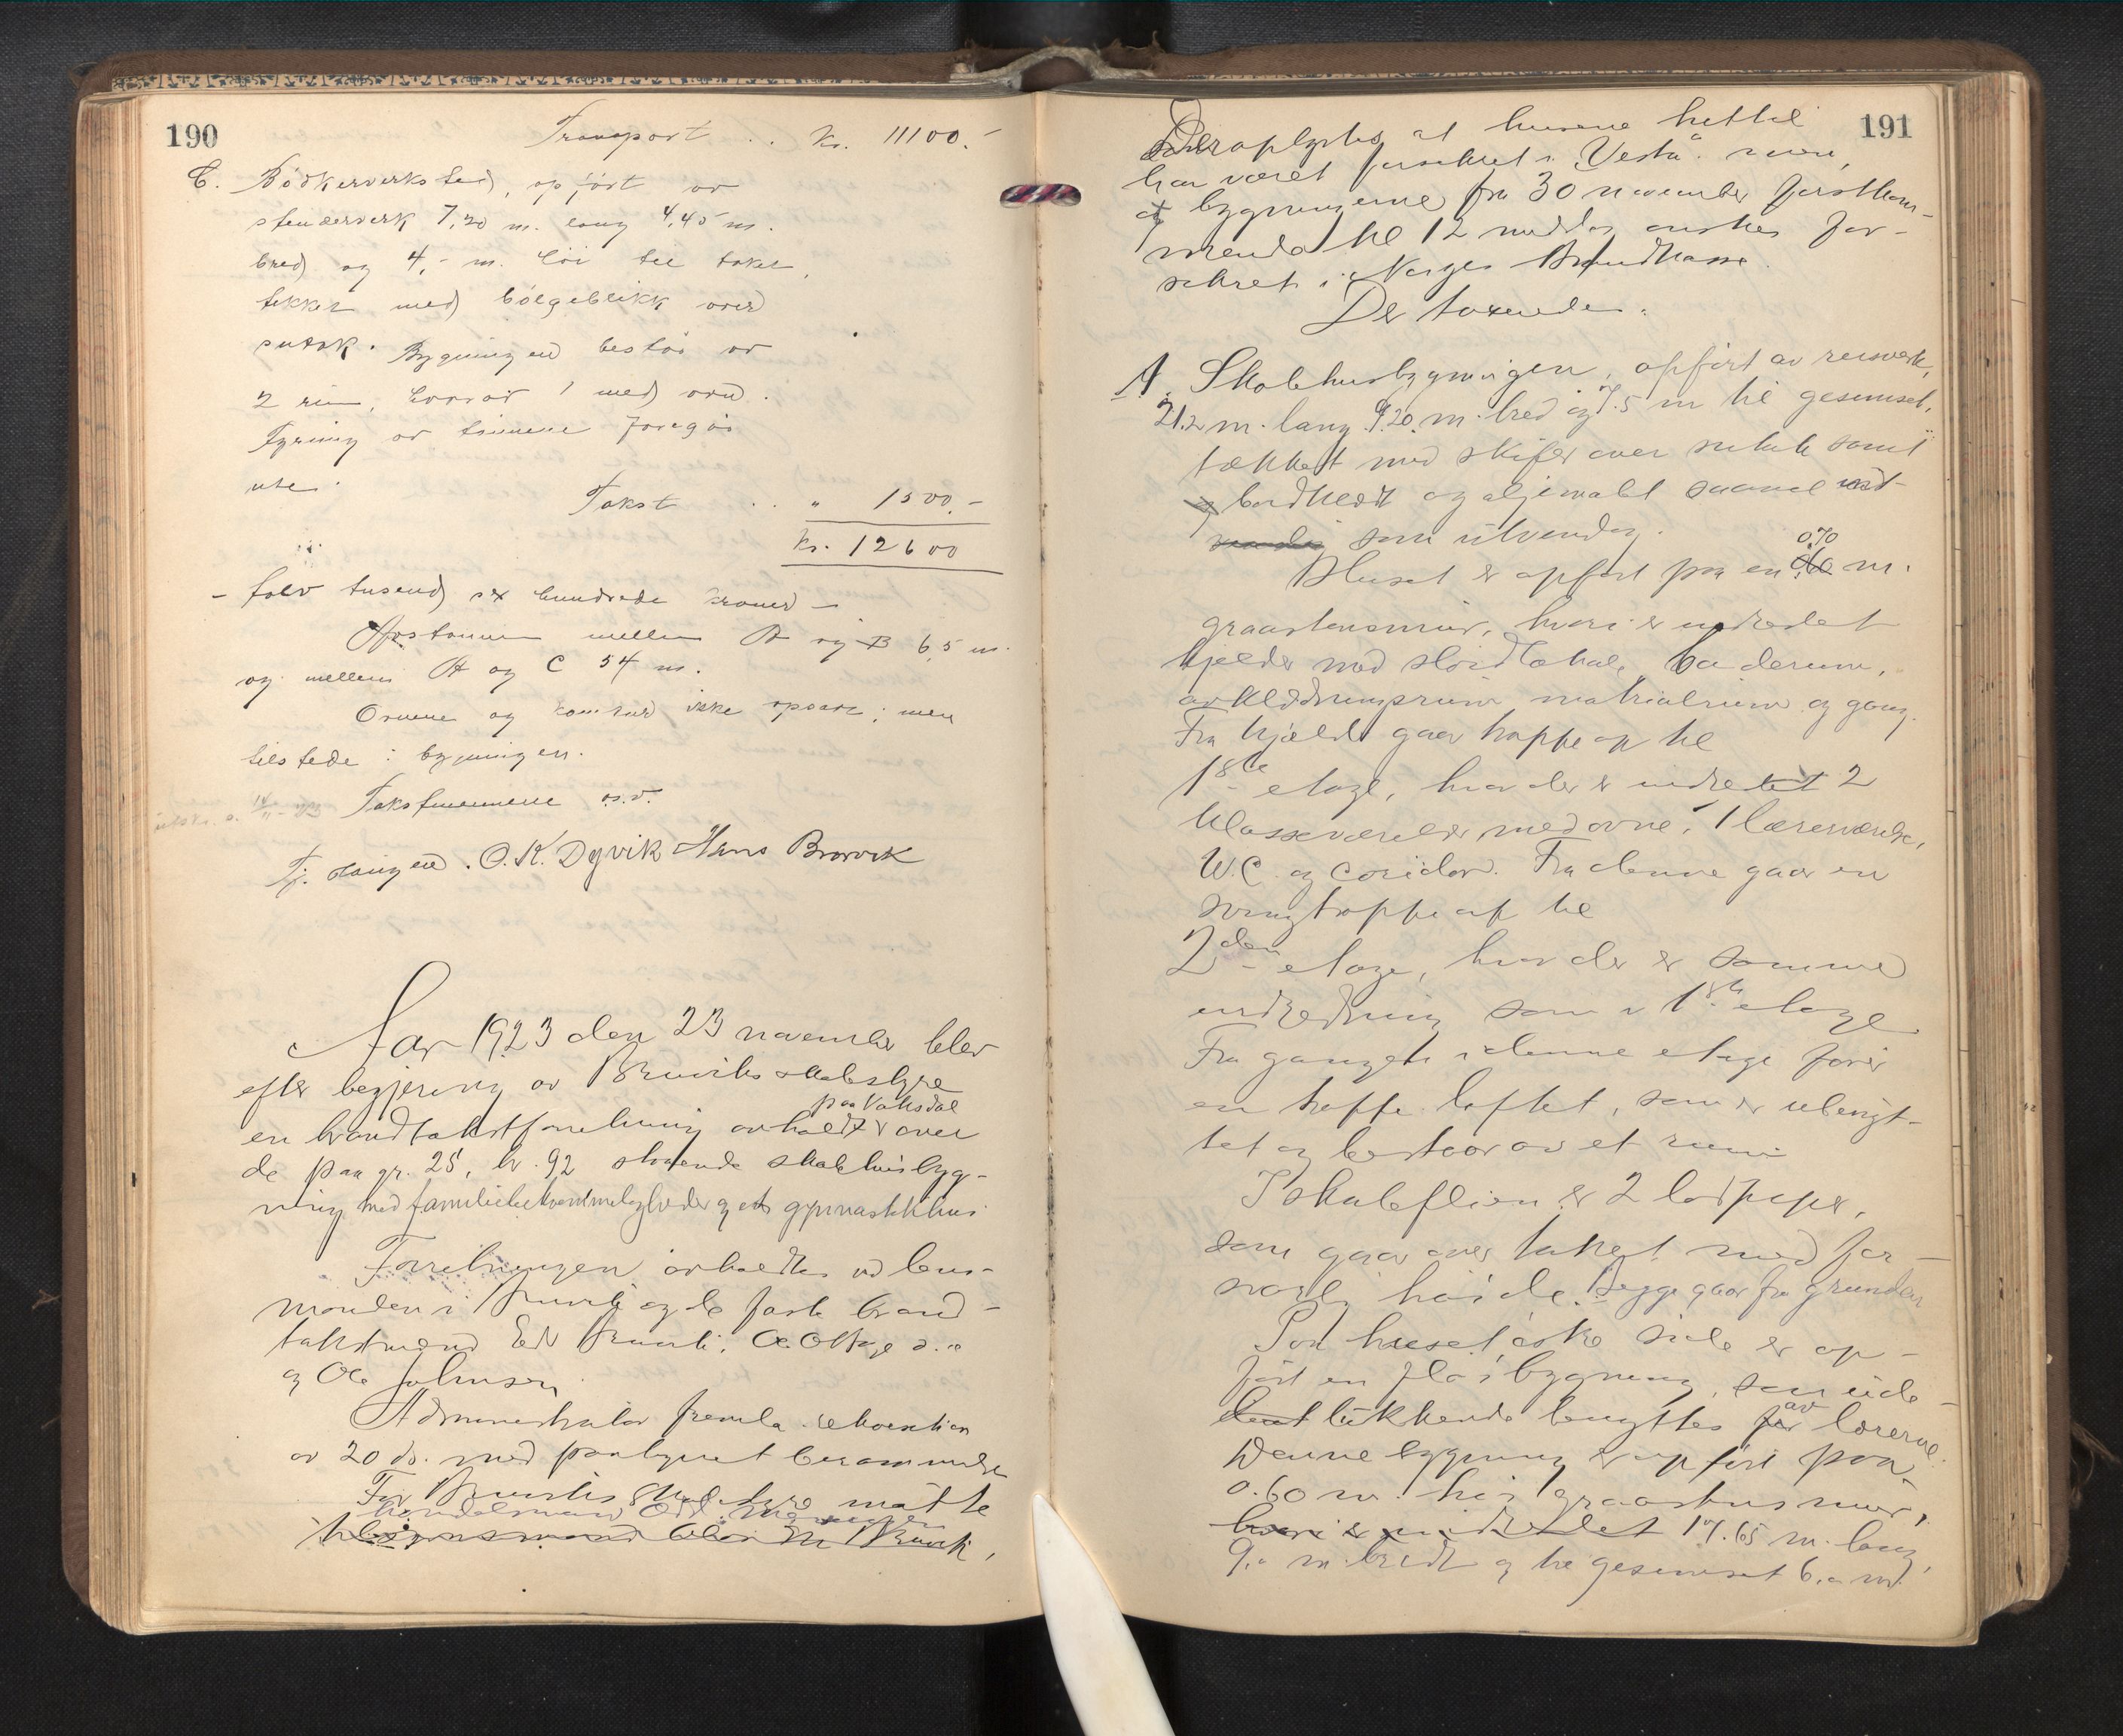 190
Transport . . kr. 11100.-
C. Bödkerverksted, opfört av
stenderverk 7,20 m. lang 4,45 m.
bred og 4,- m. höi til taket,
tekket med bölgeblikk over
sutak. Bygningen bestaar av
2 rum, hvorav 1 med ovn.
Fyring av tönnene foregaar
ute.
Takst . . " 1500.-
kr. 12600
- tolv tusend sex hundrede kroner -
Avstanden mellem A og B 6,5 m.
og mellem A og C 54 m.
Ovnene og komfur ikke opsatt; men
tilstede i bygningen.
Takstmennene o.s.v.
O. K. Dyvik Hans Brorvik
Aar 1923 den 23 november blev
efter begjering av Bruviks skolestyre
paa Vaksdal
en brandtakstforretning avholdt over
de paa gr. 25, br. 92 staaende skolehusbyg-
ning med familiebekvemmeligheder og et gymnastikhus
Forretningen avholdtes ved lens-
manden i Bruvik og de faste brand-
takstmænd
og Ole Johnsen
Administrator fremla rekvisition
av 20 ds. med paategnet berammelse
For Bruviks skolestyre mötte
191
Det oplystes at husene hittil
har været forsikret i "Vesta" men,
at bygningerne fra 30 november förstkom-
mende kl 12 middag önskes for-
sikret i Norges Brandkasse.
De taxerede:
A. Skolehusbygningen, opfört av reisverk,
21.2 m. lang 9.20 m. bred og 7.5 m til gesimset,
tækket med skifer over sutak samt
bordklædt og oljemalt saavel ind-
som utvendig.
0.70
Huset er opfört paa en m.
graastensmur, hvori er indredet
kjelder med slöidlokale, baderum,
avklædningsrum matrialrum og gang.
Fra kjelder gaar trappe op til
1ste etage, hvor der er indredet 2
klasseværelser med ovne, 1 læreværelse,
W.C. og coridor. Fra denne gaar en
svingtrappe op til
2den etage, hvor der er samme
indredning som i 1ste etage
Fra gangen i denne etage förer
en trappe loftet, som er ubenyt-
tet og bestaar av et rum
I skoleflöien er 2 lodpiper,
som gaar over taket med for-
svarlig höide. Begge gaar fra grunden
Paa husets side er op-
fört en flöibygning, som ude-
lukkende benyttes av lærerne.
Denne bygning er opfört paa
0.60 m. höi graastensmur,
hvori er indredet 17.65 m. lang,
9.0 m. bredt og til gesimset 6.0 m.